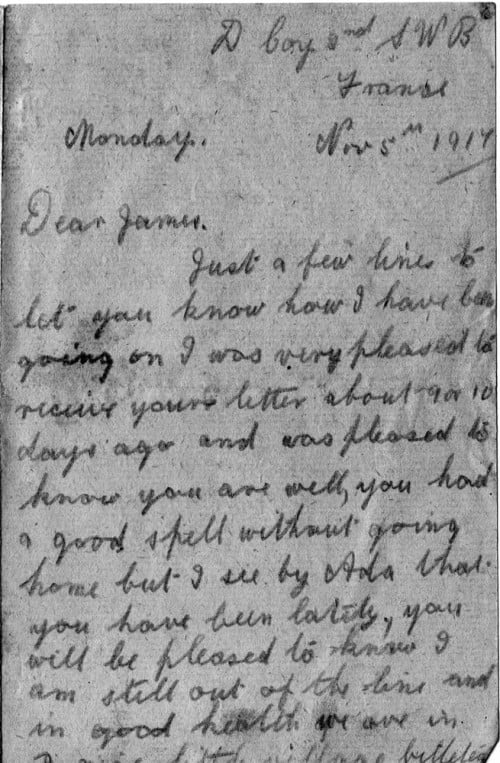 D Coy 2nd S W B
France
Monday. Nov 5th 1917
Dear James.
Just a few lines to
let you know how I have been
going on I was very pleased to
receive your letter about 9 or 10
days ago and was pleased to
know you are well, you had
a good spell without going
home but I see by Ada that
you have been lately, you
will be pleased to know I
am still out of the line and
in good health we are in
a nice little village billeted